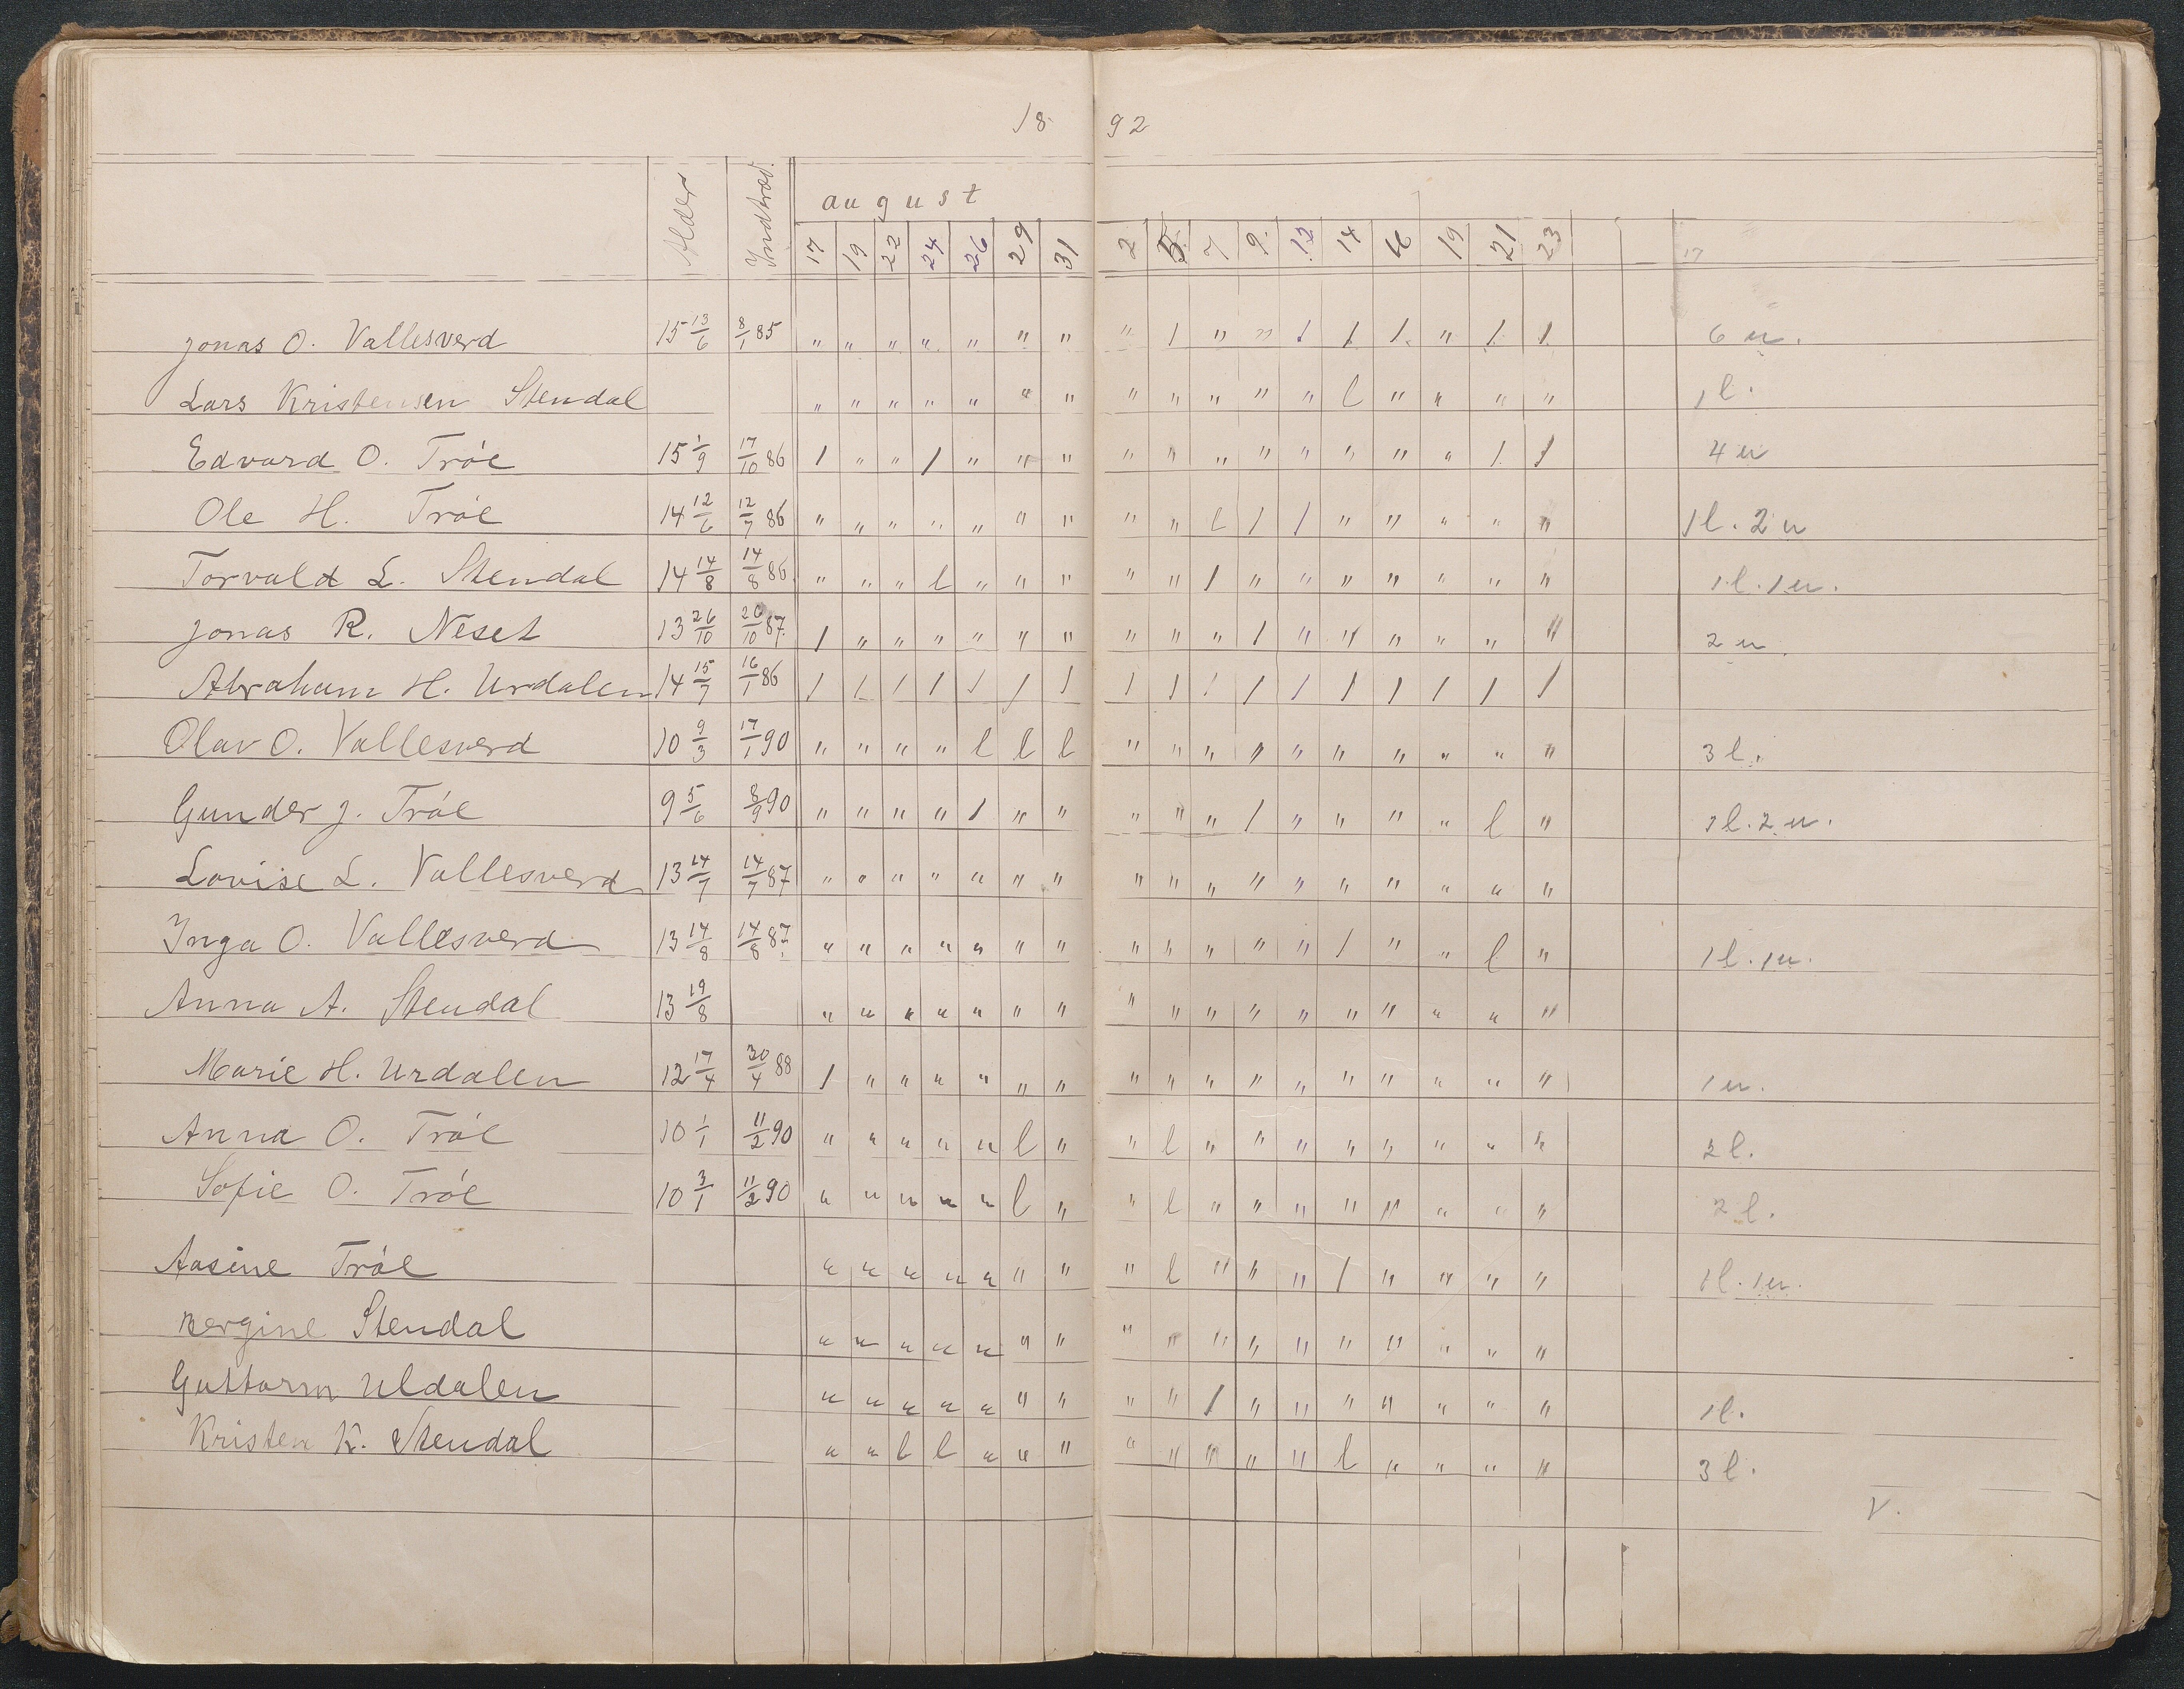 18 92
Alder Indtræd. august
17 19 22 24 26 29 31 2 5 7 9. 12 14 16 19 21 23 17
Jonas O. Vallesverd 15 13/6 8/1 85 " " " " " " " " / " " / / / " / / 6 u.
Lars Kristensen Stendal " " " " " " " " " " " " l " " " " 1 l.
Edvard O. Tróe 15 1/9 17/10 86 / " " / " " " " " " " " " " " / / 4 u
Ole H. Tróe 14 12/6 12/7 86 " " " " " " " " " l / / " " " " " 1 l. 2 u
Torvald L. Stendal 14 14/8 14/8 86 " " " l " " " " " / " " " " " " " 1 l. 1 u.
Jonas R. Neset 13 26/10 20/10 87. / " " " " " " " " " / " " " " " " 2 u.
Abraham H. Urdalen 14 15/7 16/1 86 / / / / / / / / / / / / / / / / /
Olav O. Vallesverd 10 9/3 17/1 90 " " " " l l l " " " " " " " " " " 3 l.
Gunder J. Tróe 9 5/6 8/9 90 " " " " / " " " " " / " " " " l " 1 l. 2 u.
Lovise L. Vallesverd 13 14/7 14/7 87 " " " " " " " " " " " " " " " " "
Inga O. Vallesverd 13 14/8 14/8 87. " " " " " " " " " " " " / " " l " 1 l. 1 u.
Anna A. Stendal 13 19/8 " " " " " " " " " " " " " " " " "
Marie H. Urdalen 12 17/4 30/4 88 / " " " " " " " " " " " " " " " " 1 u.
Anna O. Tróe 10 1/1 11/2 90 " " " " " l " " l " " " " " " " " 2 l.
Sofie O. Tróe 10 3/1 11/2 90 " " " " " l " " l " " " " " " " " 2 l.
Aasine Tróe " " " " " " " " l " " " / " " " " 1 l. 1 u.
Bergine Stendal " " " " " " " " " " " " " " " " "
Guttorm Uldalen " " " " " " " " " / " " " " " " " 1 l.
Kristen K. Stendal " " l l " " " " " " " " l " " " " 3 l.
V.